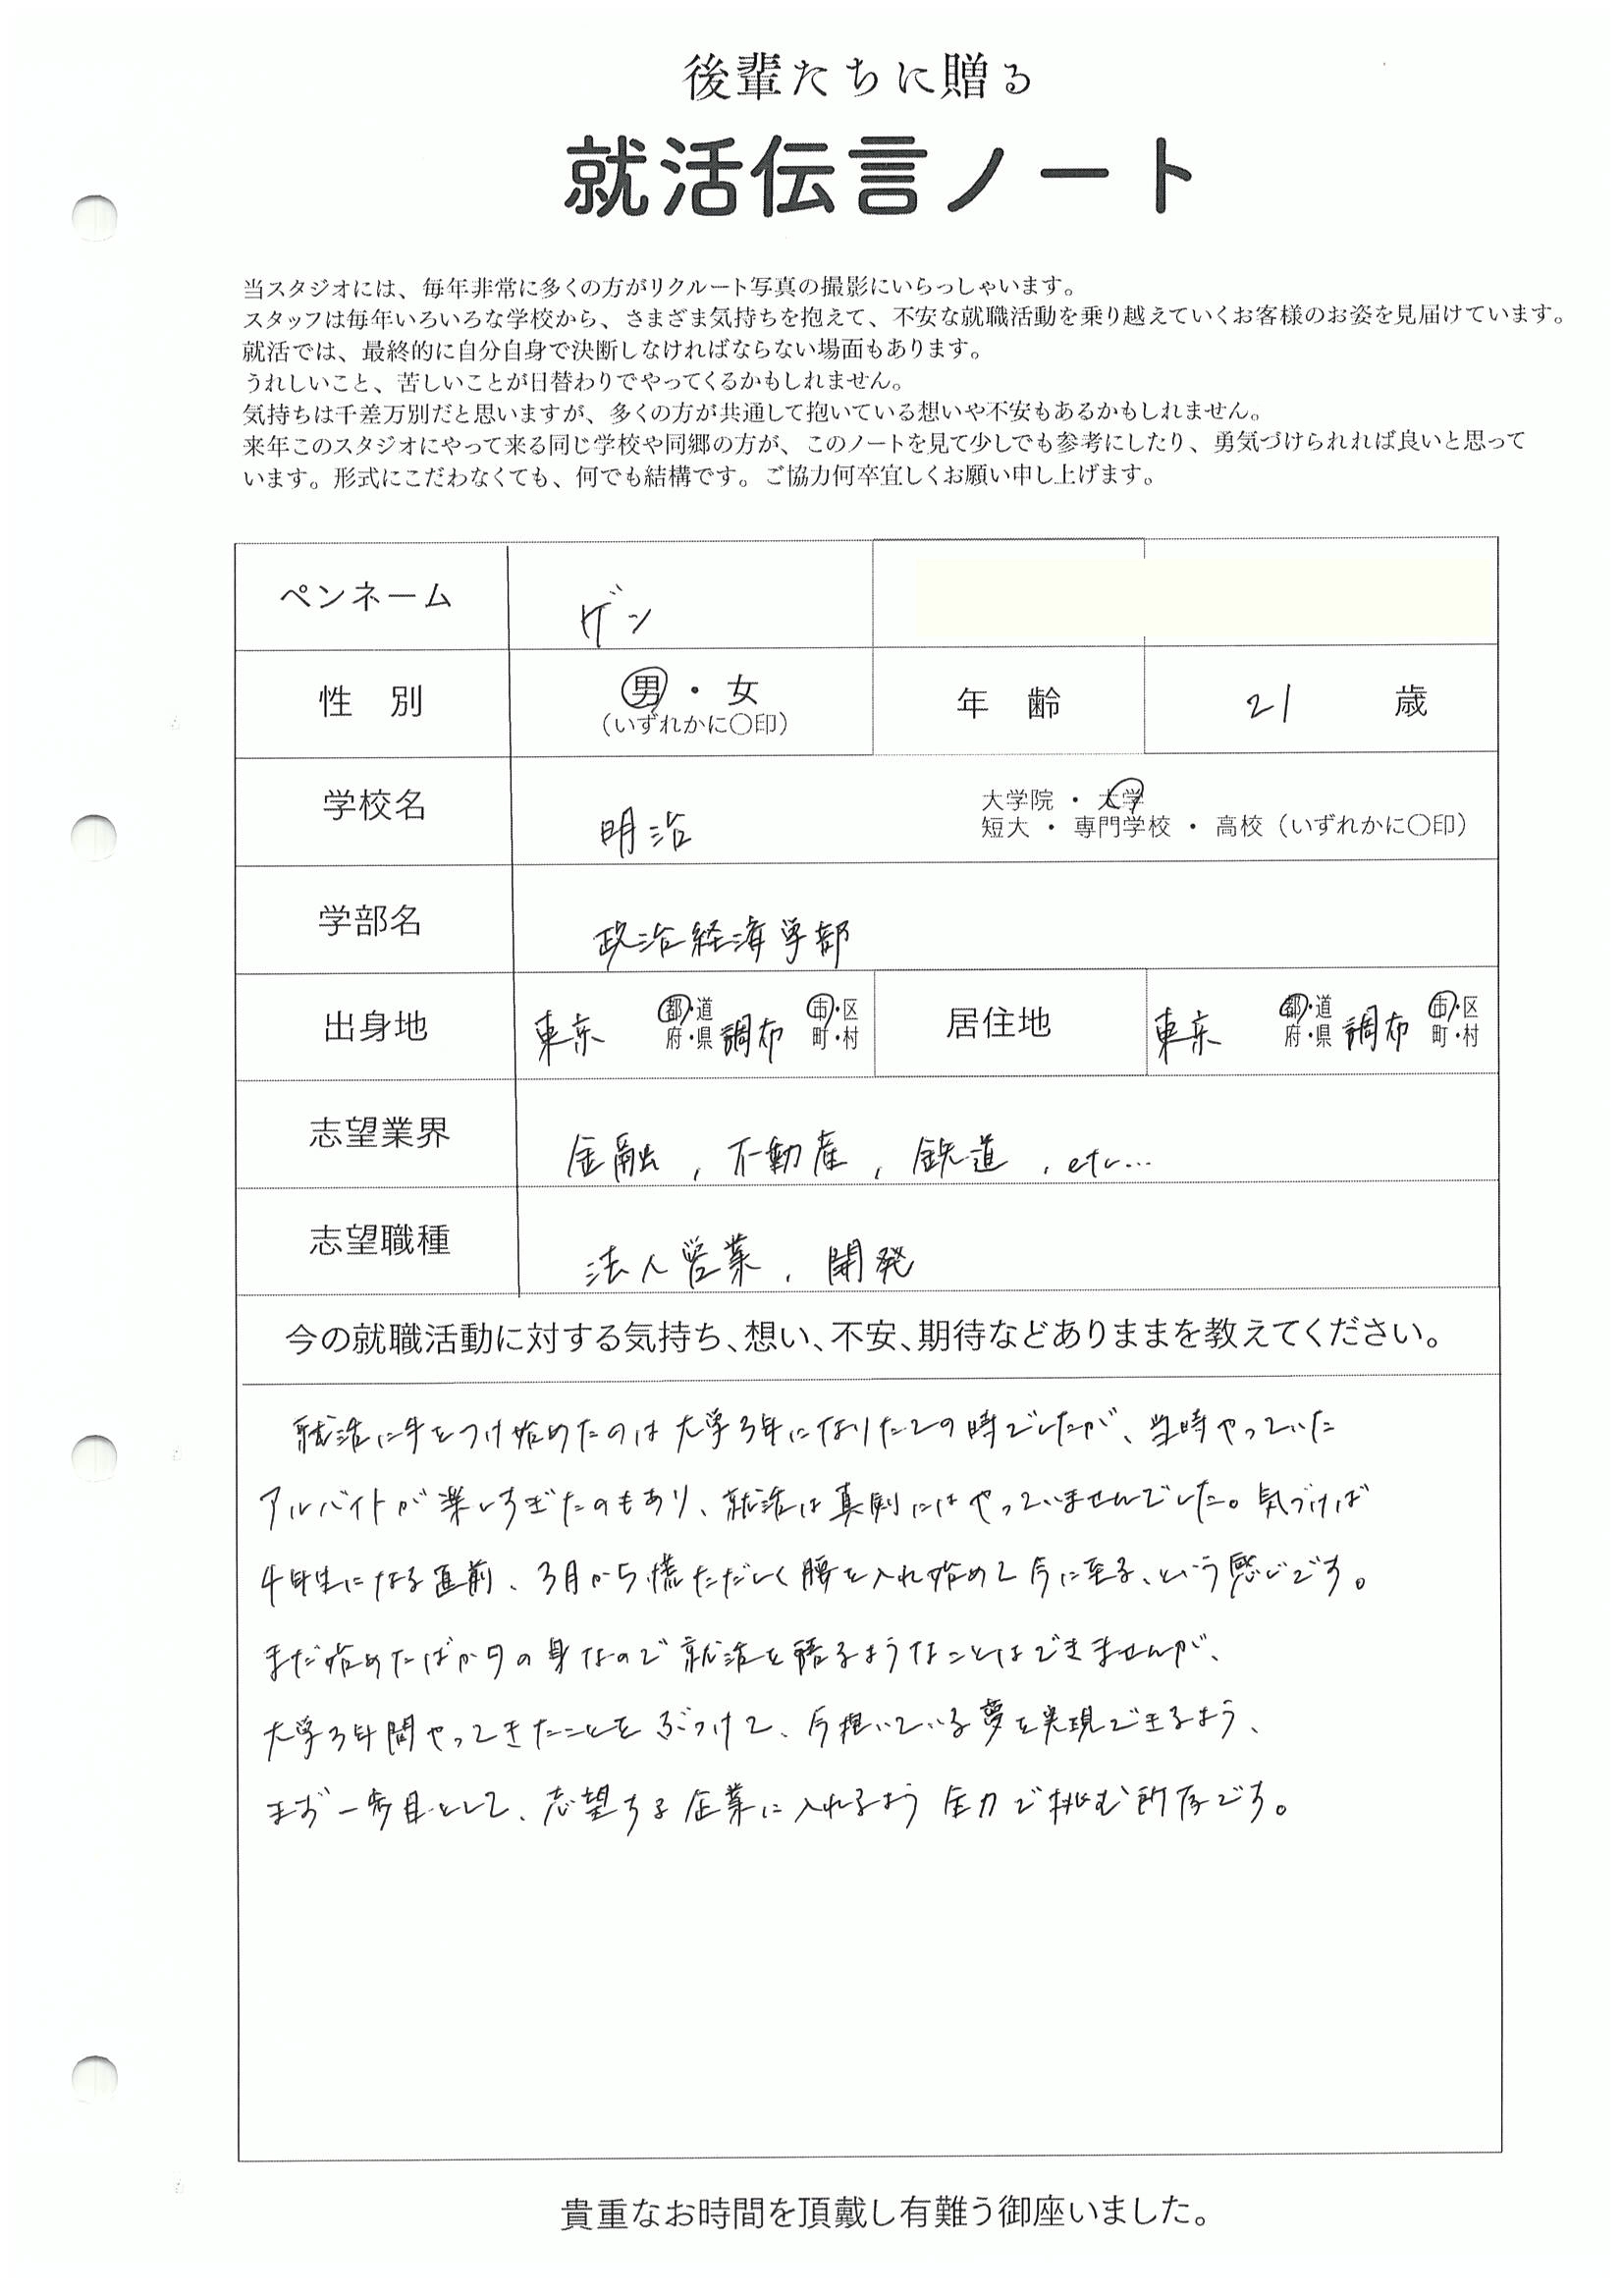 後輩たちに贈る
就活伝言ノート
当スタジオには、毎年非常に多くの方がリクルート写真の撮影にいらっしゃいます。
スタッフは毎年いろいろな学校から、さまざま気持ちを抱えて、不安な就職活動を乗り越えていくお客様のお姿を見届けています。
就活では、最終的に自分自身で決断しなければならない場面もあります。
うれしいこと、苦しいことが日替わりでやってくるかもしれません。
気持ちは千差万別だと思いますが、多くの方が共通して抱いている想いや不安もあるかもしれません。
来年このスタジオにやって来る同じ学校や同郷の方が、このノートを見て少しでも参考にしたり、勇気づけられれば良いと思って
います。形式にこだわなくても、何でも結構です。ご協力何卒宜しくお願い申し上げます。
ペンネーム ゲン
性 別 男・女 年 齢 21 歳
(いずれかに〇印)
学校名 明治 大学院 ・ 大学
短大 ・ 専門学校 ・ 高校(いずれかに〇印)
学部名 政治経済学部
出身地 東京 都・道府・県 調布 市・区町・村 居住地 東京 都・道府・県 調布 市・区町・村
志望業界 金融, 不動産, 鉄道, etc…
志望職種 法人営業, 開発
今の就職活動に対する気持ち、想い、不安、期待などありままを教えてください。
就活に手をつけ始めたのは大学3年になりたての時でしたが、当時やっていた
アルバイトが楽しすぎたのもあり、就活は真剣にはやっていませんでした。気づけば
4年生になる直前、3月から慌ただしく腰を入れ始めて今に至る、という感じです。
まだ始めたばかりの身なので就活を語るようなことはできませんが、
大学3年間やってきたことをぶつけて、今抱いている夢を実現できるよう、
まず一歩目として、志望する企業に入れるよう全力で挑む所存です。
貴重なお時間を頂戴し有難う御座いました。